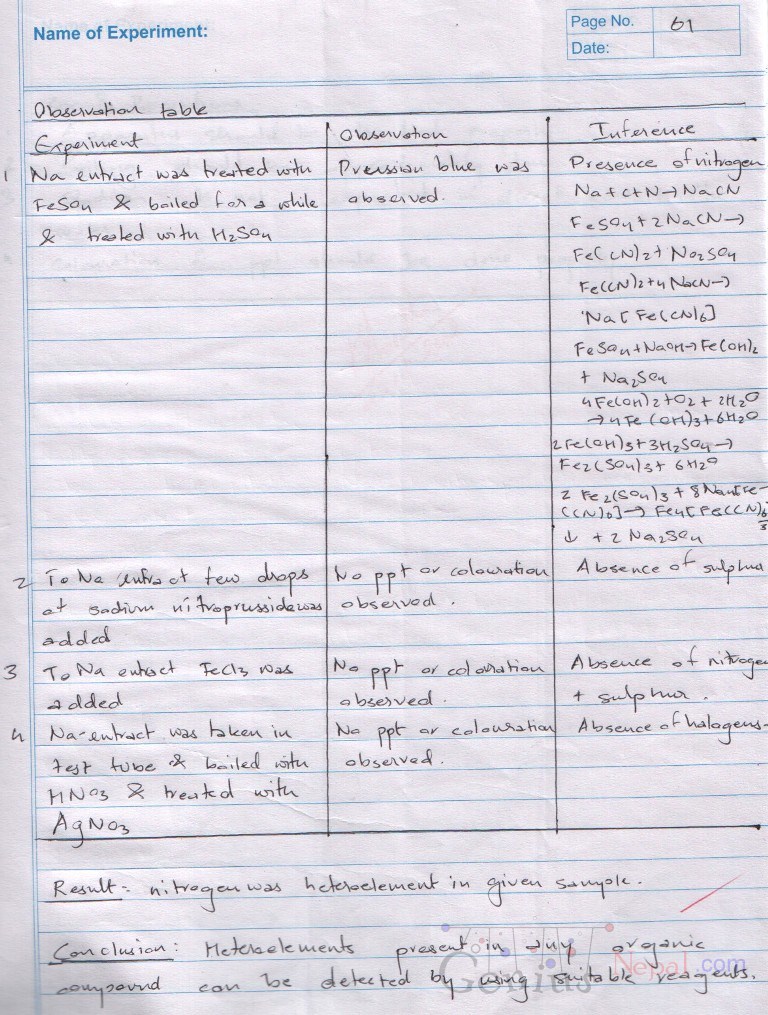 Name of Experiment:
Page No. 61
Date:
Observation table
Experiment
Observation
Inference
1 Na extract was treated with
FeSO4 & boiled for a while
& treated with H2SO4
Prussian blue was
observed.
Presence of nitrogen
Na+C+N→NaCN
FeSO4+2NaCN→
Fe(CN)2+Na2SO4
Fe(CN)2+4NaCN→
Na[Fe(CN)6]
FeSO4+NaOH→Fe(OH)2
+ Na2SO4
4Fe(OH)2+O2+2H2O
→4Fe(OH)3+6H2O
2Fe(OH)3+3H2SO4→
Fe2(SO4)3+6H2O
2 Fe2(SO4)3 + 8Na4[Fe-
(CN)6]→ Fe4[Fe(CN)6]3
↓ + 2 Na2SO4
2 To Na extract few drops
of sodium nitroprusside was
added
No ppt or colouration
observed.
Absence of sulphur
3 To Na extract FeCl3 was
added
No ppt or colouration
observed.
Absence of nitrogen
+ sulphur.
4 Na-extract was taken in
test tube & boiled with
HNO3 & treated with
AgNO3
No ppt or colouration
observed.
Absence of halogens.
Result:- nitrogen was heteroelement in given sample.
Conclusion: Heteroelements present in any organic
compound can be detected by using suitable reagents.
Genius Nepal.com